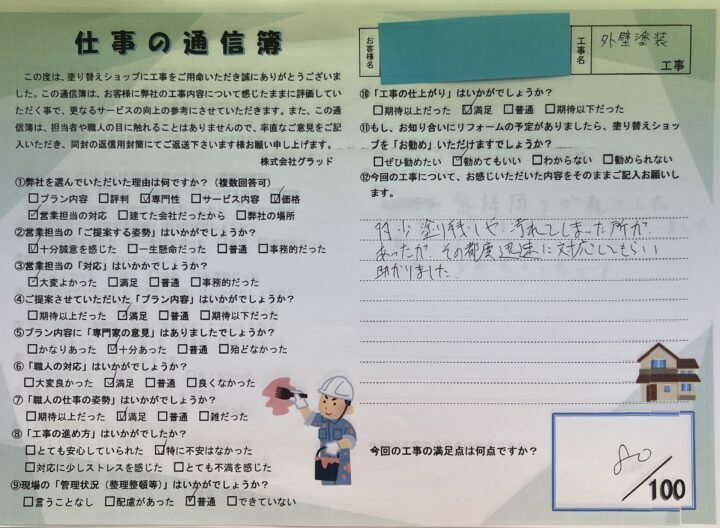 仕事の通信簿
この度は、塗り替えショップに工事をご用命いただき誠にありがとうございま
した。この通信簿は、お客様に弊社の工事内容について感じたままに評価してい
ただく事で、更なるサービスの向上の参考にさせていただきます。また、この通
信簿は、担当者や職人の目に触れることはありませんので、率直なご意見をご記
入いただき、同封の返信用封筒にてご返送下さいます様お願い申し上げます。
株式会社グラッド
①弊社を選んでいただいた理由は何ですか?(複数回答可)
□プラン内容 □評判 ☑専門性 □サービス内容 ☑価格
☑営業担当の対応 □建てた会社だったから □弊社の場所
②営業担当の「ご提案する姿勢」はいかがでしょうか?
☑十分誠意を感じた □一生懸命だった □普通 □事務的だった
③営業担当の「対応」はいかがでしょうか?
☑大変よかった □満足 □普通 □事務的だった
④ご提案させていただいた「プラン内容」はいかがでしょうか?
□期待以上だった ☑満足 □普通 □期待以下だった
⑤プラン内容に「専門家の意見」はありましたでしょうか?
□かなりあった ☑十分あった □普通 □殆どなかった
⑥「職人の対応」はいかがでしょうか?
□大変良かった ☑満足 □普通 □良くなかった
⑦「職人の仕事の姿勢」はいかがでしょうか?
□期待以上だった ☑満足 □普通 □雑だった
⑧「工事の進め方」はいかがでしたか?
□とても安心していられた ☑特に不安はなかった
□対応に少しストレスを感じた □とても不満を感じた
⑨現場の「管理状況(整理整頓等)」はいかがでしょうか?
□言うことなし □配慮があった ☑普通 □できていない
お客様名
工事名
外壁塗装
工事
⑩「工事の仕上がり」はいかがでしょうか?
□期待以上だった ☑満足 □普通 □期待以下だった
⑪もし、お知り合いにリフォームの予定がありましたら、塗り替えショッ
プを「お勧め」いただけますでしょうか?
□ぜひ勧めたい ☑勧めてもいい □わからない □勧められない
⑫今回の工事について、お感じいただいた内容をそのままご記入お願いし
ます。
多少塗り残しや汚れてしまった所が
あったが、その都度迅速に対応してもらい
助かりました。
今回の工事の満足点は何点ですか?
80
/100